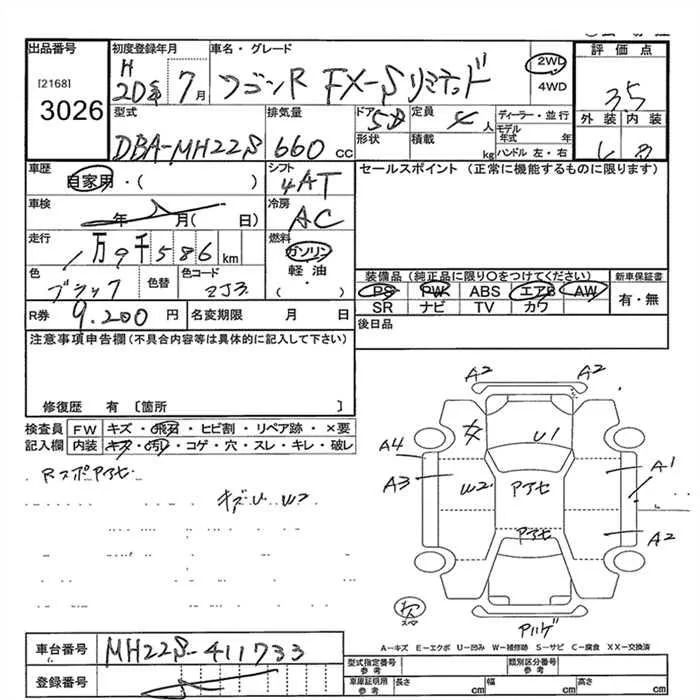 出品番号
[2168]
3026
初度登録年月
H 20年 7月
車名・グレード
ワゴンR FX-Sリミテッド
2WD
4WD
評価点
3.5
外装 内装
型式
DBA-MH22S
排気量
660 cc
ドア 5D
形状
定員 4人
積載 kg
ディーラー・並行
モデル年式 年
ハンドル 左・右
車歴
自家用・( )
シフト
4AT
セールスポイント (正常に機能するものに限ります)
車検
年 月( 日)
冷房
AC
走行
1万9千586km
燃料
ガソリン
軽油
( )
色
ブラック
色替
色コード
ZJ3
装備品 (純正品に限り○をつけてください)
PS PW ABS エアB AW
SR ナビ TV カワ
新車保証書
有・無
R券 9.200円
名変期限 月 日
後日品
注意事項申告欄(不具合内容等は具体的に記入して下さい)
修復歴 有 [箇所 ]
検査員記入欄
FW キズ・飛石・ヒビ割・リペア跡・×要
内装 キズ・汚れ・コゲ・穴・スレ・キレ・破レ
Rスポアアセ
キズU W2
A2
A2
U1
A4
A3
W2
アアセ
A1
アアセ
A2
A-キズ E-エクボ U-凹み W-補修跡 S-サビ C-腐食 XX-交換済
車台番号
MH22S-411733
登録番号
型式指定番号 参考
類別区分番号 参考
車庫証明用 参考
長さ cm
幅 cm
高さ cm